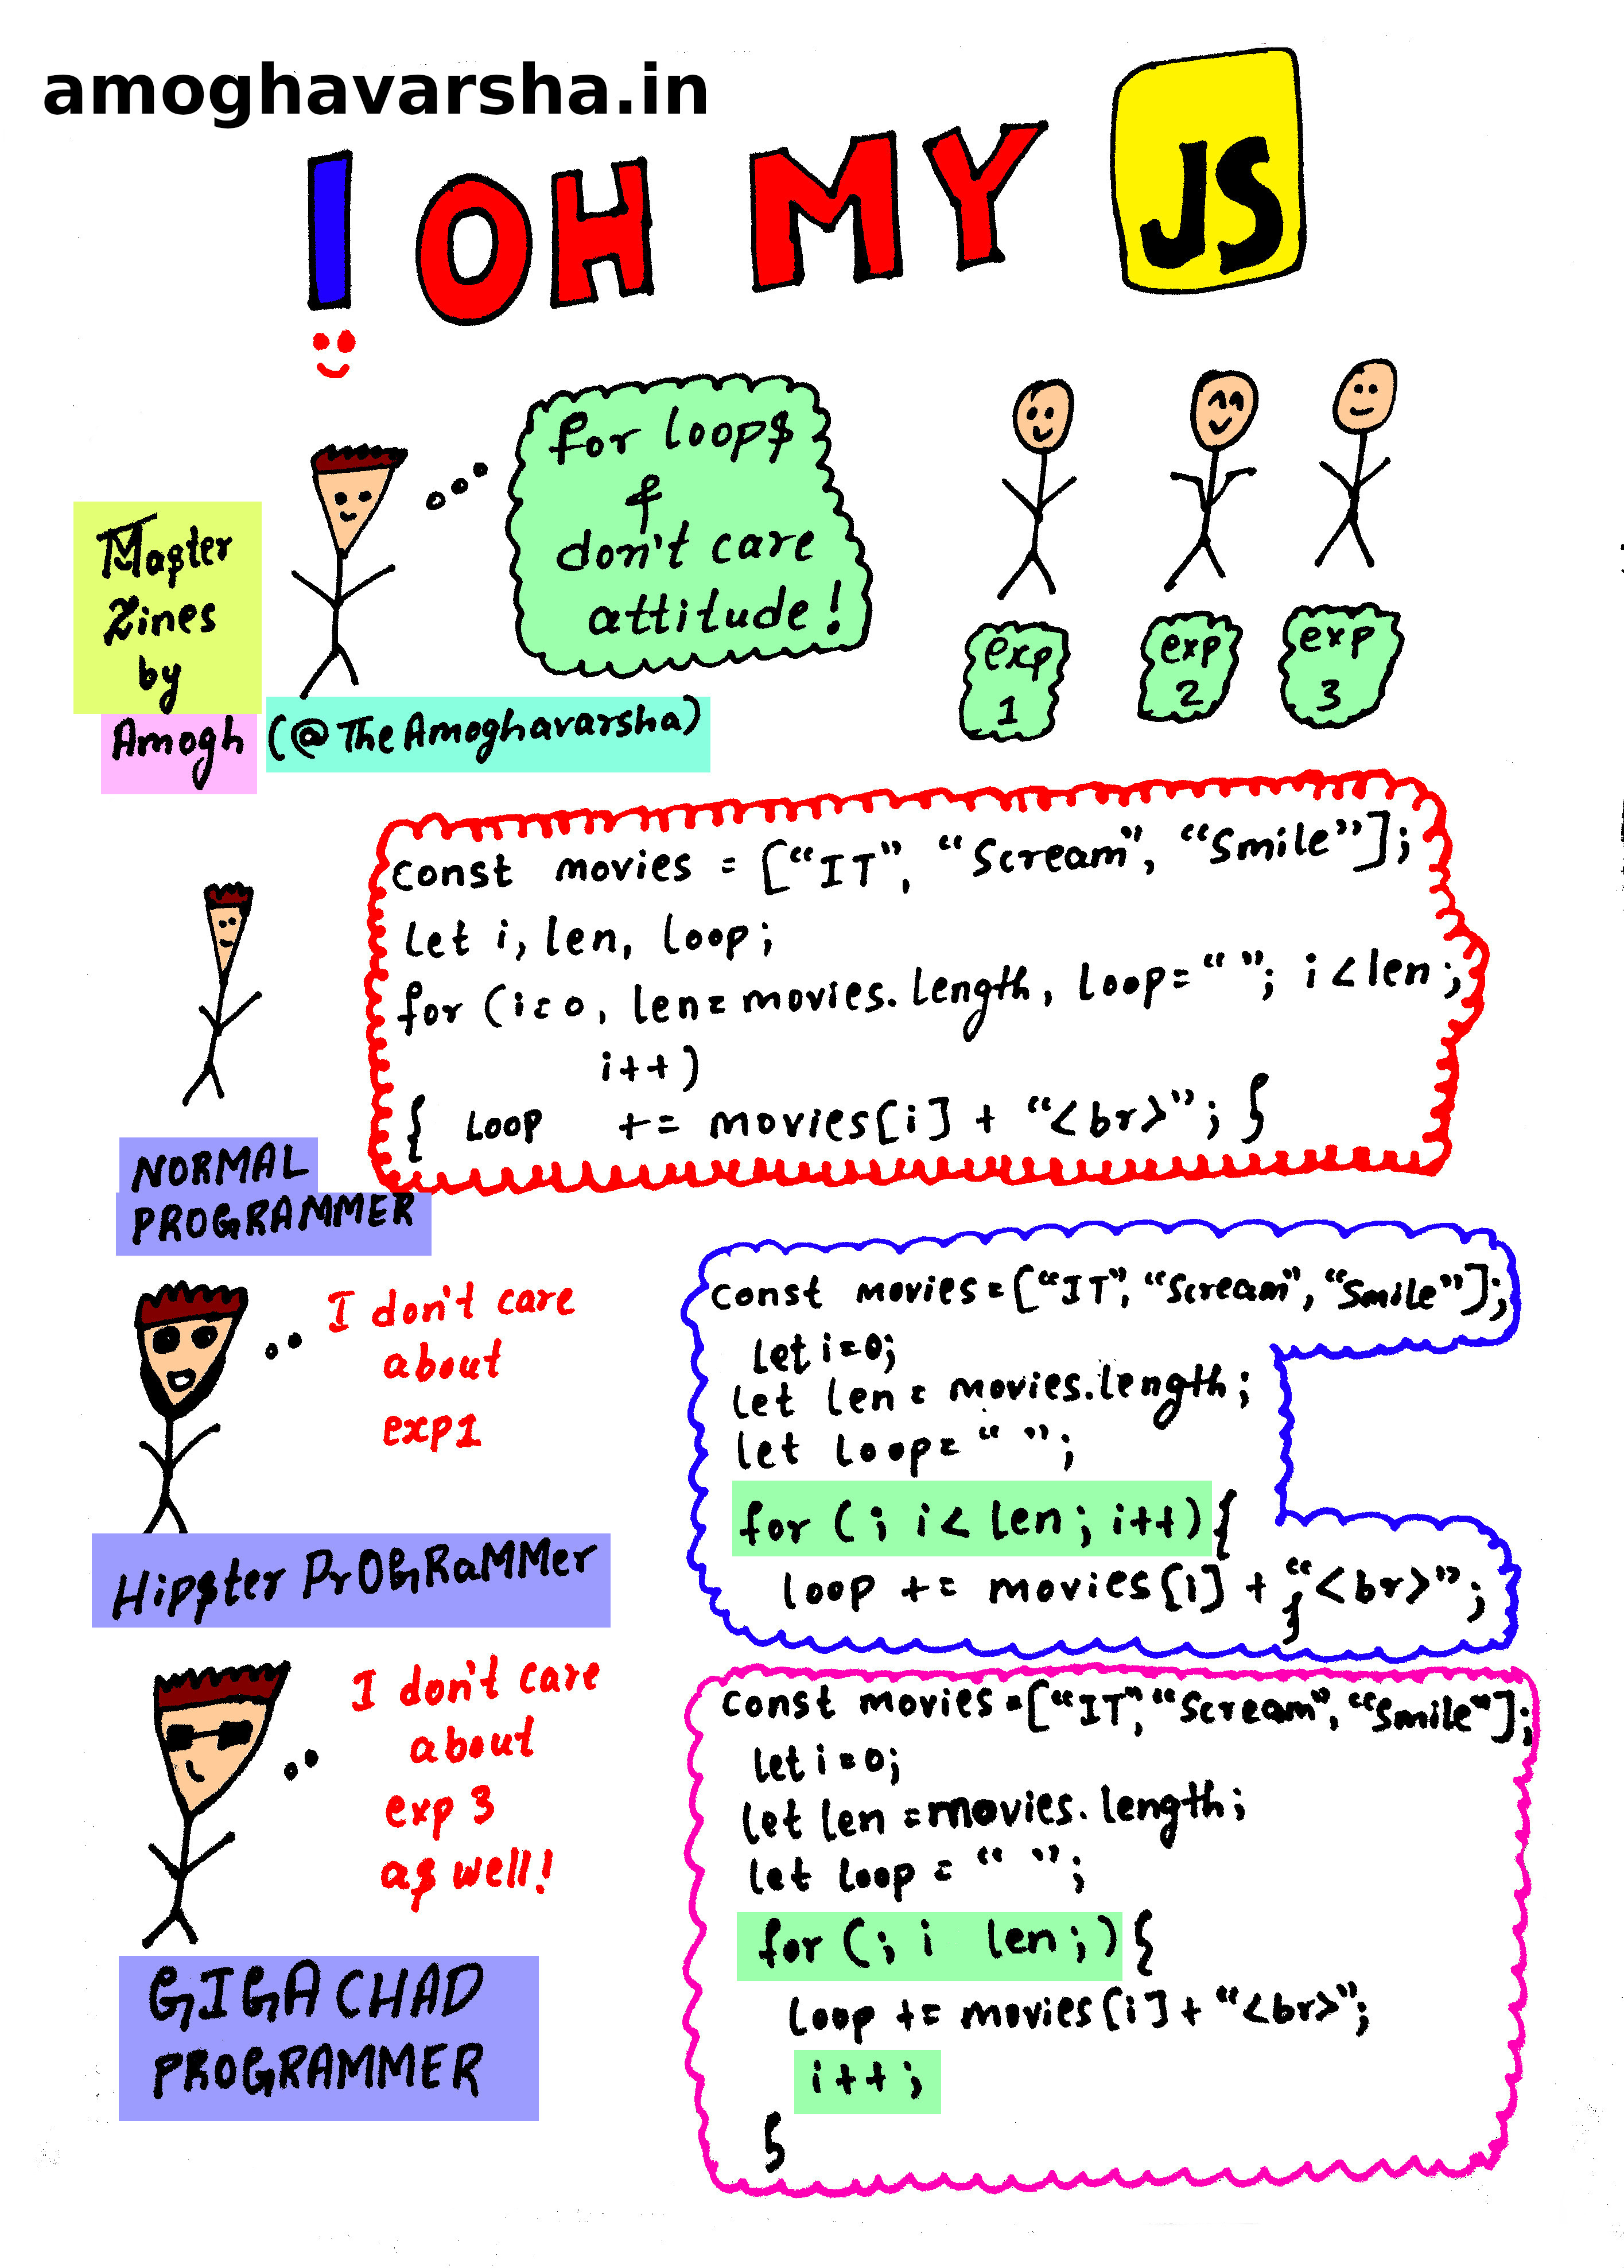 amoghavarsha.in
I OH MY JS
for loops
&
don't care
attitude!
Master
Zines
by
Amogh (@TheAmoghavarsha)
exp
1
exp
2
exp
3
const movies = ["IT", "Scream", "Smile"];
Let i, len, loop;
for (i=0, len=movies.length, loop=" "; i<len;
i++)
{ Loop += movies[i] + "<br>"; }
NORMAL
PROGRAMMER
I don't care
about
exp1
const movies=["IT", "Scream", "Smile"];
let i=0;
let len = movies.length;
let loop= " ";
for (; i< len; i++){
loop += movies[i] + "<br>";
}
Hipster PrOGRaMMer
I don't care
about
exp 3
as well!
const movies =["IT", "Scream", "Smile"];
let i=0;
let len =movies.length;
let loop = " ";
for (; i len;){
loop += movies[i] + "<br>";
i++;
}
GIGACHAD
PROGRAMMER